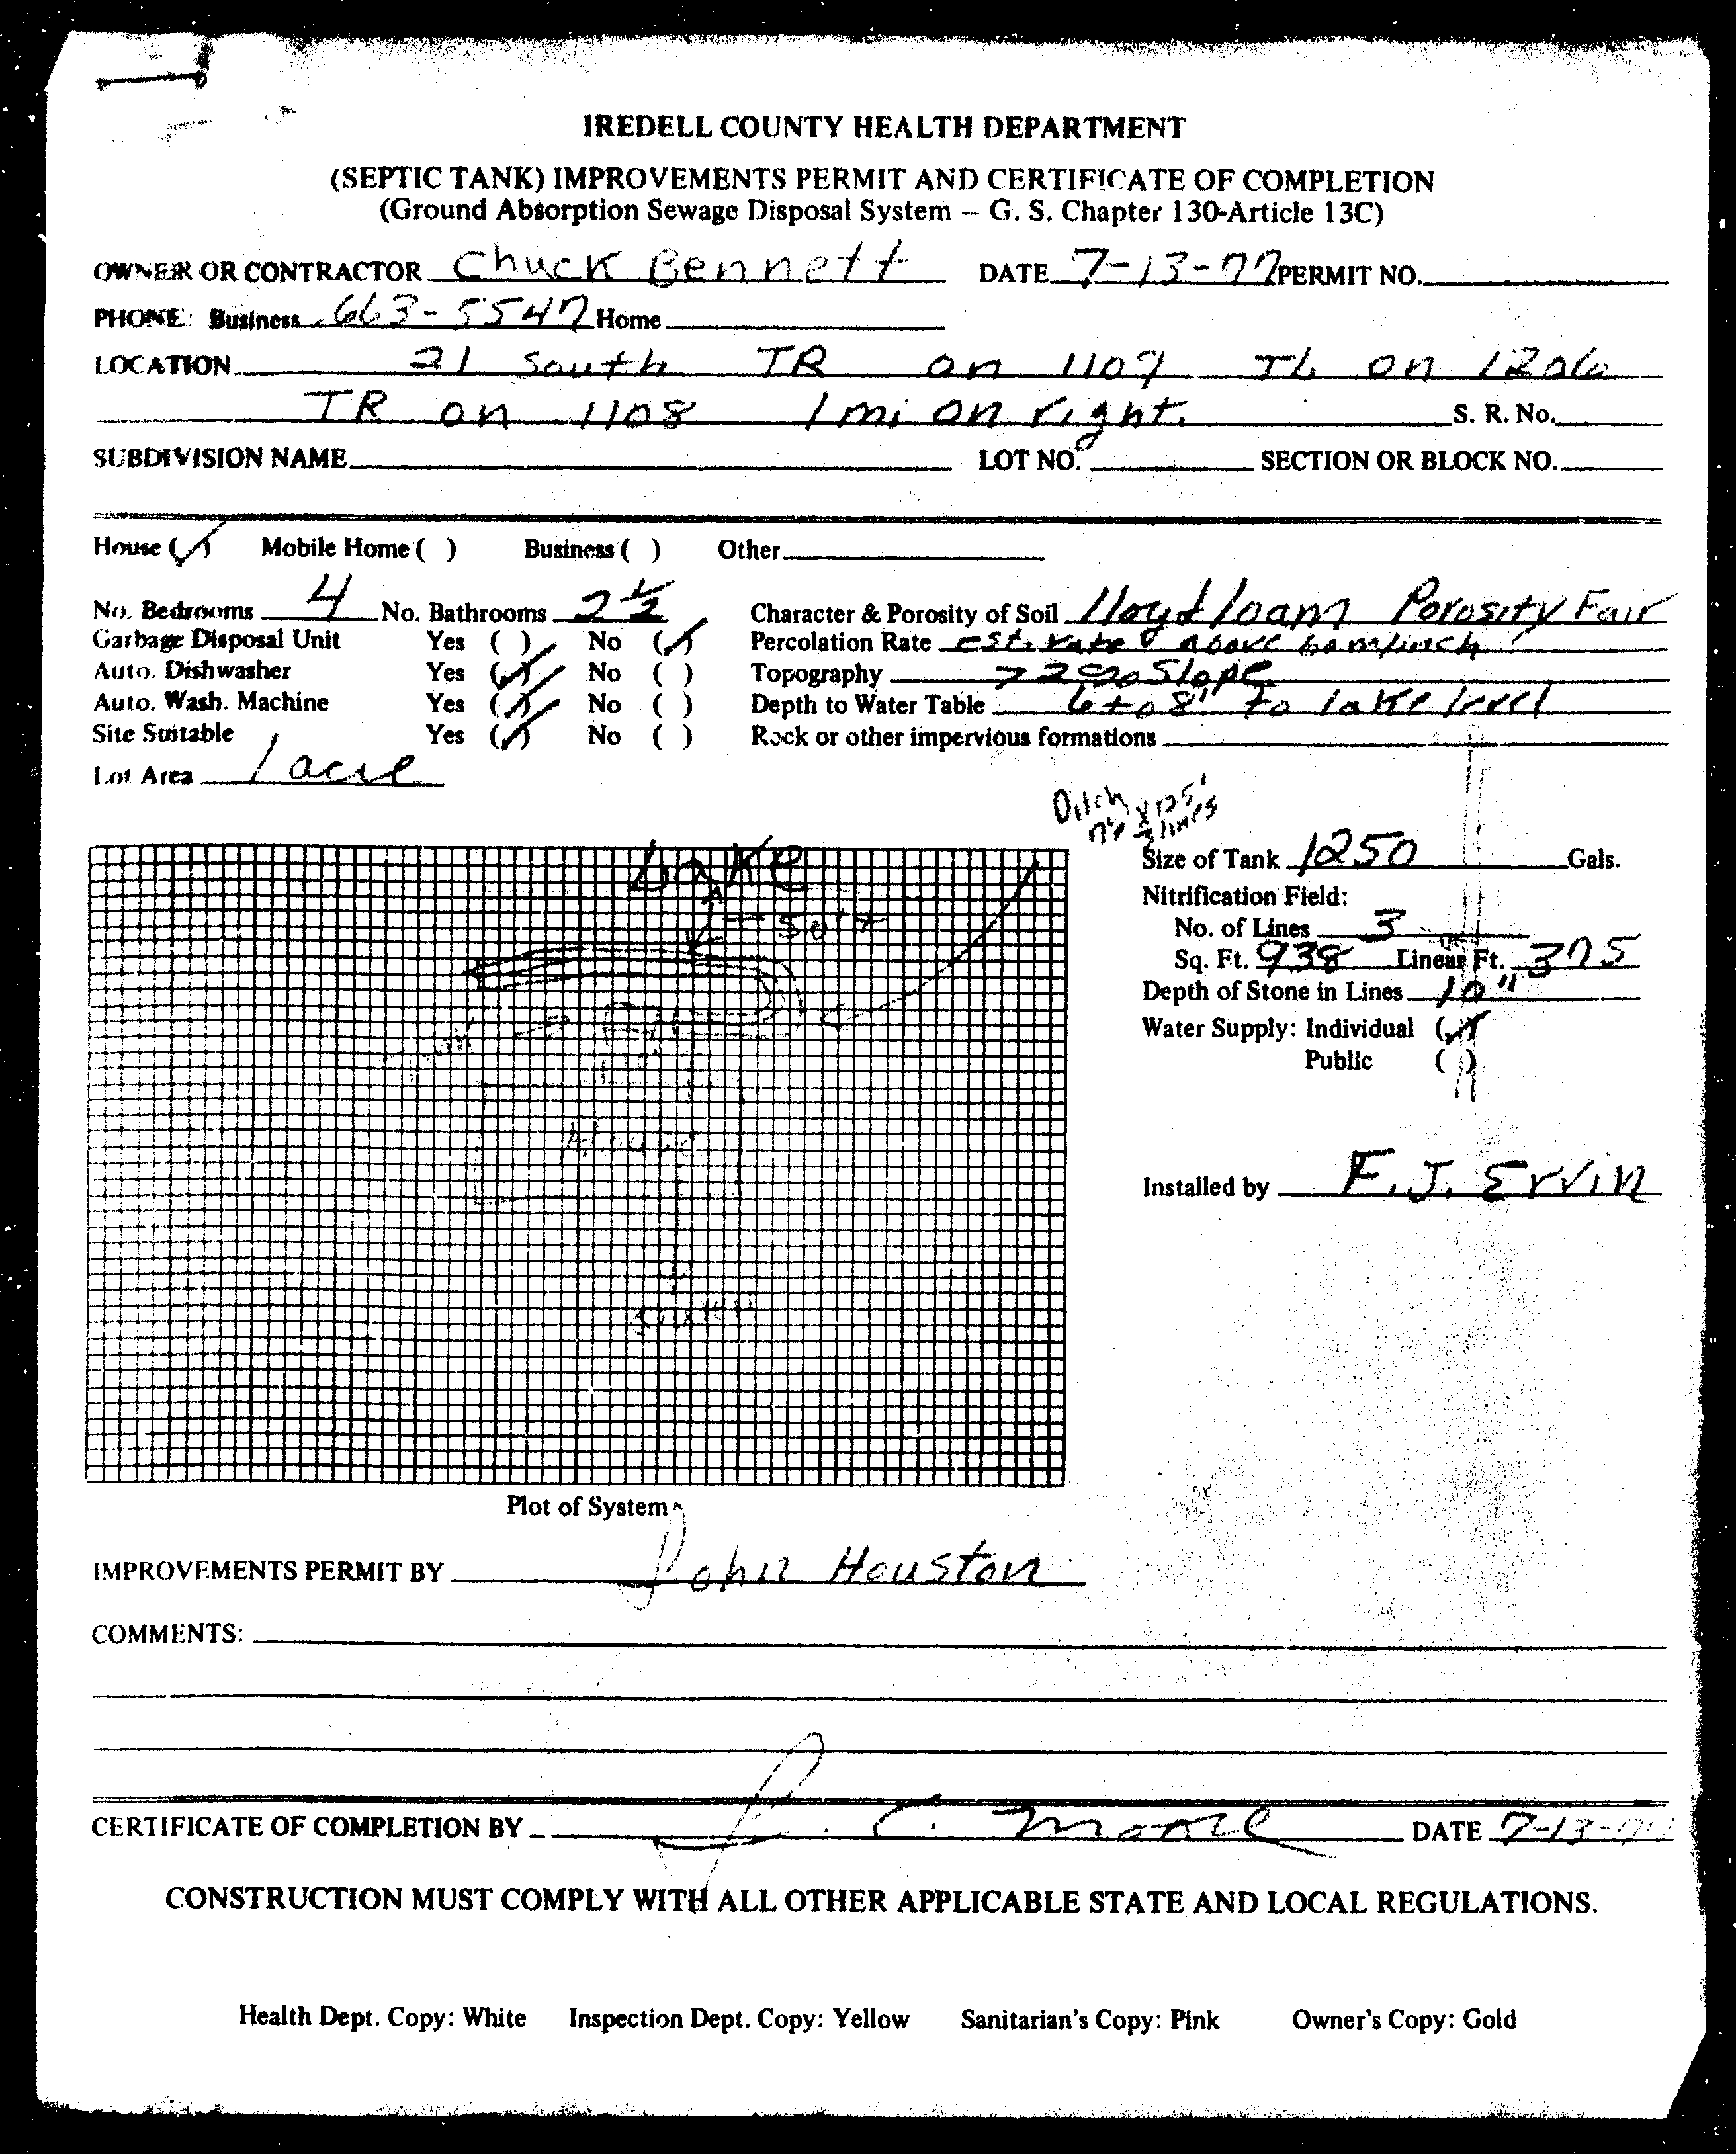 IREDELL COUNTY HEALTH DEPARTMENT
(SEPTIC TANK) IMPROVEMENTS PERMIT AND CERTIFICATE OF COMPLETION
(Ground Absorption Sewage Disposal System – G. S. Chapter 130-Article 13C)
OWNER OR CONTRACTOR Chuck Bennett DATE 7-13-77 PERMIT NO.
PHONE: Business 663-5547 Home
LOCATION 21 South TR on 1109 TL on 1206
TR on 1108 1 mi on right. S. R. No.
SUBDIVISION NAME LOT NO. SECTION OR BLOCK NO.
House (✓) Mobile Home ( ) Business ( ) Other
No. Bedrooms 4 No. Bathrooms 2 1/2 Character & Porosity of Soil Lloyd loam Porosity Fair
Garbage Disposal Unit Yes ( ) No (✓) Percolation Rate est. rate above 60m/inch
Auto. Dishwasher Yes (✓) No ( ) Topography Slope
Auto. Wash. Machine Yes (✓) No ( ) Depth to Water Table 6 to 8' to lake level
Site Suitable Yes (✓) No ( ) Rock or other impervious formations
Lot Area 1 acre
Ditch
3 lines
Lake
50'+
Size of Tank 1250 Gals.
Nitrification Field:
No. of Lines 3
Sq. Ft. 938 Linear Ft. 375
Depth of Stone in Lines 10"
Water Supply: Individual (✓)
Public ( )
House
Installed by F. J. Ervin
Plot of System
IMPROVEMENTS PERMIT BY John Houston
COMMENTS:
CERTIFICATE OF COMPLETION BY J. C. Moore DATE 7-13-77
CONSTRUCTION MUST COMPLY WITH ALL OTHER APPLICABLE STATE AND LOCAL REGULATIONS.
Health Dept. Copy: White Inspection Dept. Copy: Yellow Sanitarian's Copy: Pink Owner's Copy: Gold